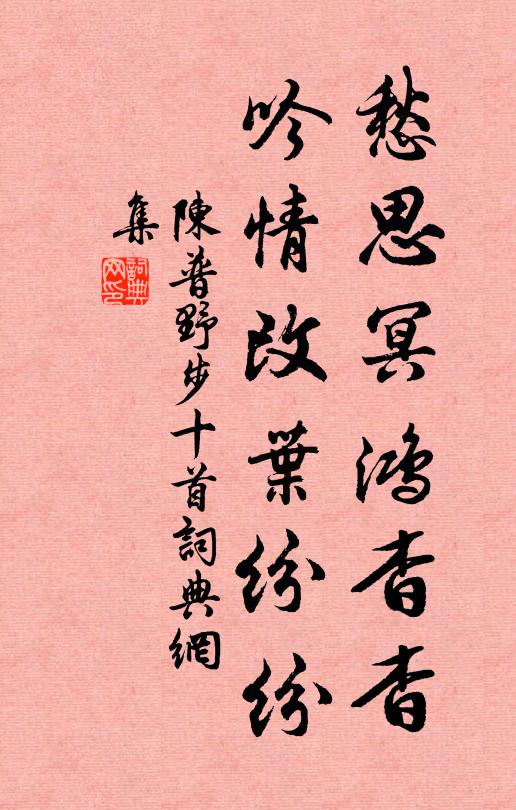 愁思冥鴻杳杳
吟情改葉紛紛
陳普野步十首詞典網
集
詞典
网印